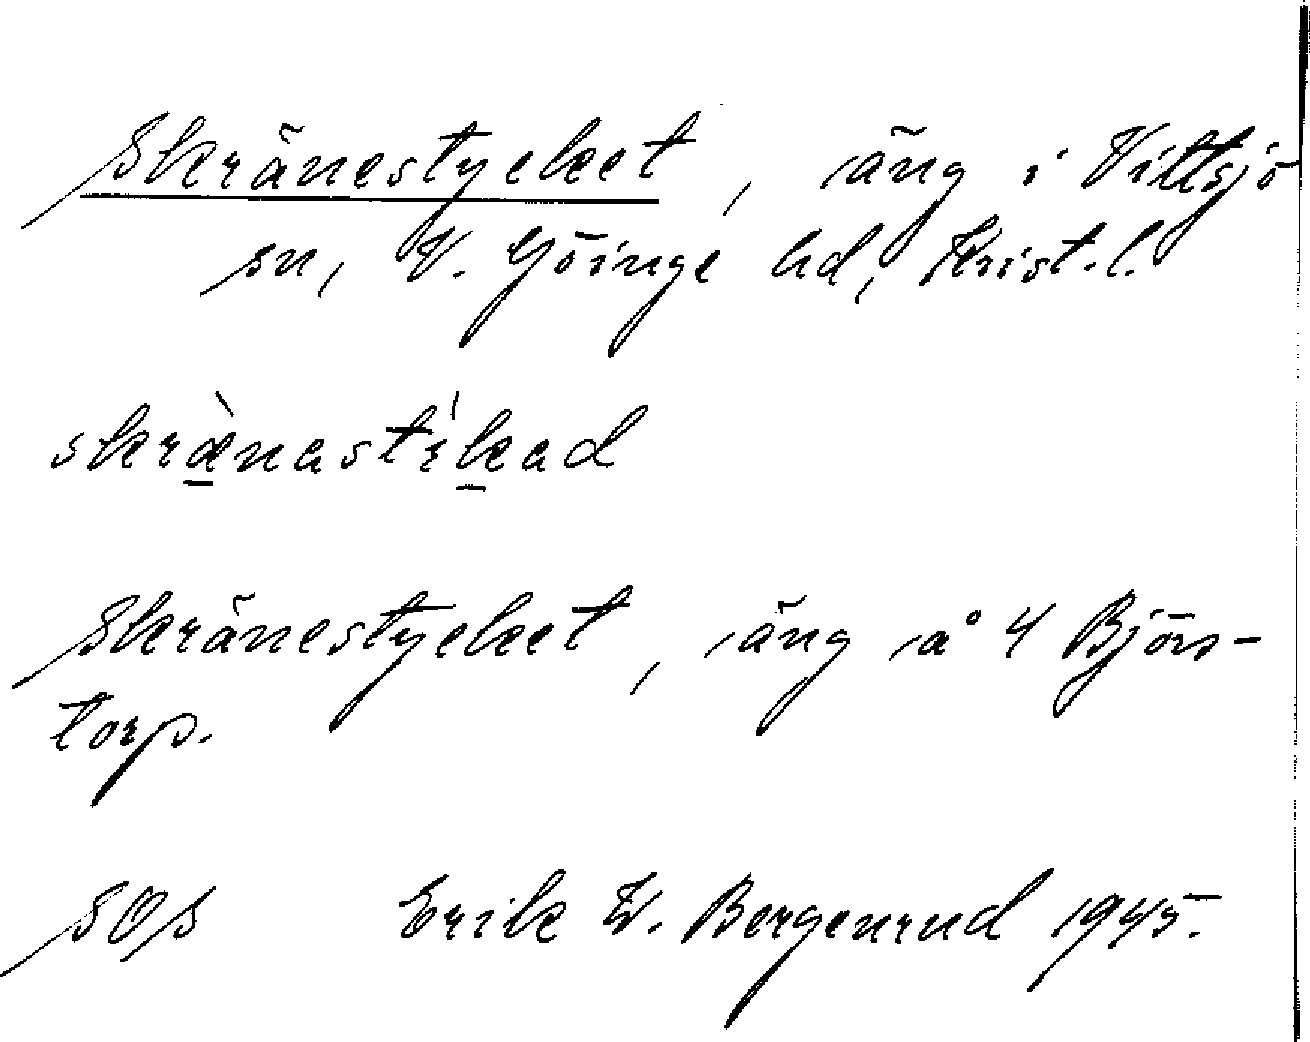 Skränestycket, äng i Vittsjö
sn, V. Göinge hd, Krist. l.
skrànastíkad
Skränestycket, äng å 4 Björs-
torp.
SOS Erik W. Bergenrud 1945.